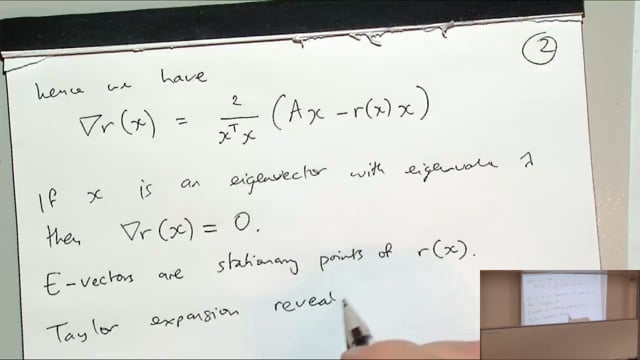 2
hence we have
∇r(x) = 2/(xᵀx) (Ax − r(x)x)
If x is an eigenvector with eigenvalue λ
then ∇r(x) = 0.
E-vectors are stationary points of r(x).
Taylor expansion reveal